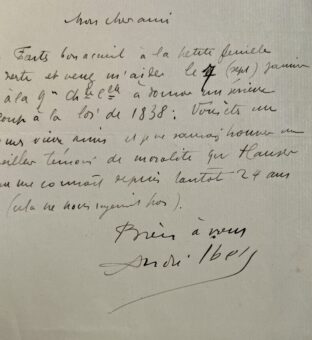 Mon cher ami
Faits bon accueil à la petite feuille
verte et venez m'aider le 7 (sept) janvier
à la 9e Ch^bre C^lle à donner un sérieux
coup à la loi de 1838 : Vous êtes un
vieux amis et je ne saurais honorer un
meilleur témoin de moralité qu'
me connait depuis tantôt 24 ans
(cela ne nous rajeunit pas).
Bien à vous
André Ibels